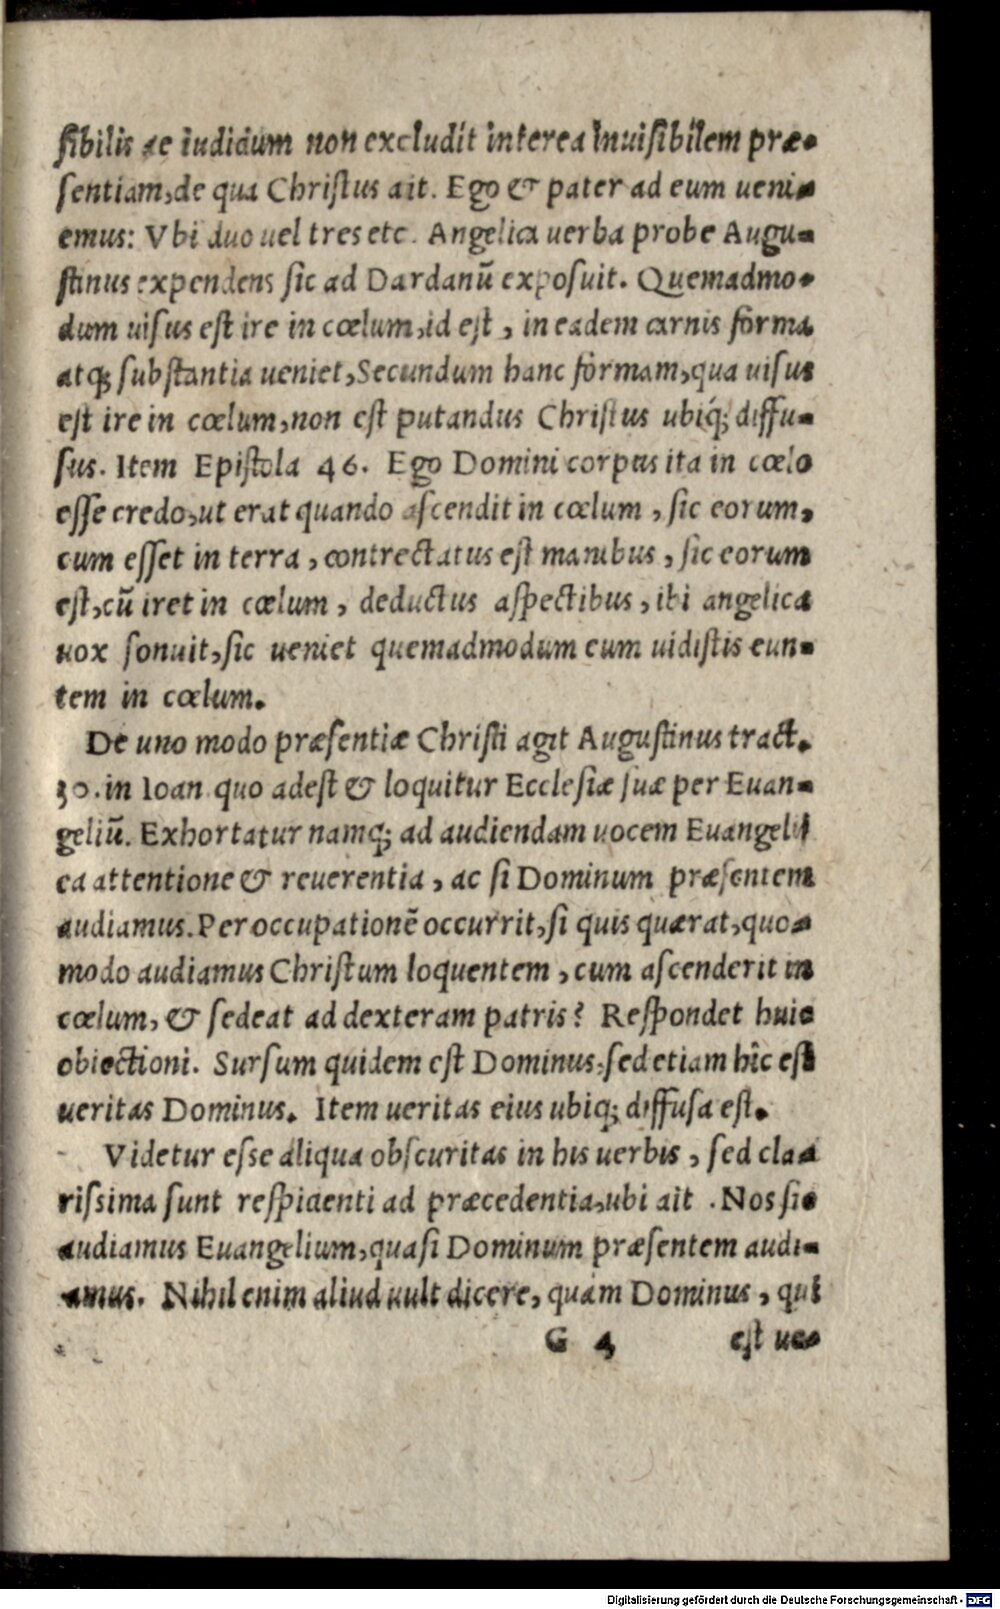 sibilis ad iudicium non excludit interea inuisibilem præ-
sentiam, de qua Christus ait. Ego & pater ad eum ueni-
emus: Vbi duo uel tres etc. Angelica uerba probe Augu-
stinus expendens sic ad Dardanū exposuit. Quemadmo-
dum uisus est ire in cœlum, id est, in eadem carnis forma
atq; substantia ueniet, Secundum hanc formam, qua uisus
est ire in cœlum, non est putandus Christus ubiq́; diffu-
sus. Item Epistola 46. Ego Domini corpus ita in cœlo
esse credo, ut erat quando ascendit in cœlum, sic eorum,
cum esset in terra, contrectatus est manibus, sic eorum
est, cū iret in cœlum, deductus aspectibus, ibi angelica
uox sonuit, sic ueniet quemadmodum eum uidistis eun-
tem in cœlum.
De uno modo præsentiæ Christi agit Augustinus tract.
30. in Ioan quo adest & loquitur Ecclesiæ suæ per Euan-
geliū. Exhortatur namq; ad audiendam uocem Euangelij
ea attentione & reuerentia, ac si Dominum præsentem
audiamus. Per occupationē occurrit, si quis quærat, quo-
modo audiamus Christum loquentem, cum ascenderit in
cœlum, & sedeat ad dexteram patris? Respondet huic
obiectioni. Sursum quidem est Dominus, sed etiam hîc est
ueritas Dominus. Item ueritas eius ubiq; diffusa est.
Videtur esse aliqua obscuritas in his uerbis, sed cla-
rissima sunt respicienti ad præcedentia, ubi ait. Nos sic
audiamus Euangelium, quasi Dominum præsentem audi-
amus. Nihil enim aliud uult dicere, quàm Dominus, qui
G 4 est ue-
Digitalisierung gefördert durch die Deutsche Forschungsgemeinschaft - DFG